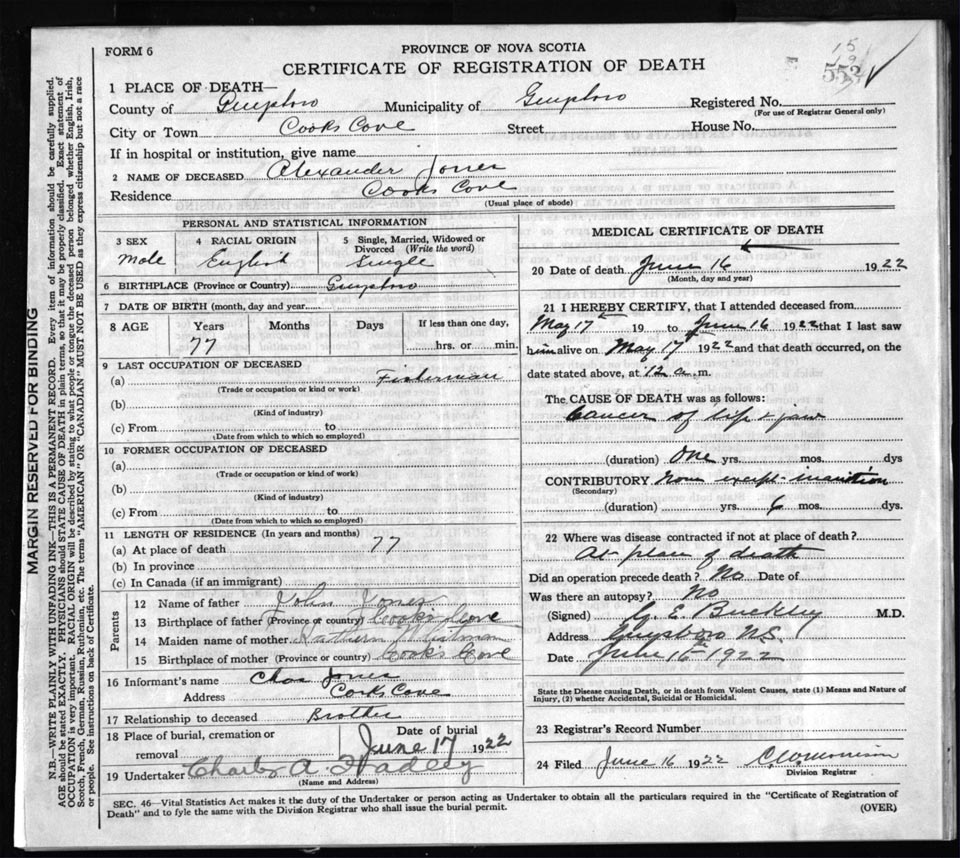 FORM 6
PROVINCE OF NOVA SCOTIA
CERTIFICATE OF REGISTRATION OF DEATH
552
1 PLACE OF DEATH—
County of Guysboro Municipality of Guysboro Registered No.
(For use of Registrar General only)
City or Town Cooks Cove Street House No.
If in hospital or institution, give name
2 NAME OF DECEASED Alexander Jones
Residence Cooks Cove
(Usual place of abode)
PERSONAL AND STATISTICAL INFORMATION
3 SEX 4 RACIAL ORIGIN 5 Single, Married, Widowed or Divorced (Write the word)
Male English Single
6 BIRTHPLACE (Province or Country) Guysboro
7 DATE OF BIRTH (month, day and year
8 AGE Years Months Days If less than one day,
77 hrs. or min.
9 LAST OCCUPATION OF DECEASED
(a) Fisherman
(Trade or occupation or kind or work)
(b)
(Kind of industry)
(c) From to
(Date from which to which so employed)
10 FORMER OCCUPATION OF DECEASED
(a)
(Trade or occupation or kind of work)
(b)
(Kind of industry)
(c) From to
(Date from which to which so employed)
11 LENGTH OF RESIDENCE (In years and months)
(a) At place of death 77
(b) In province
(c) In Canada (if an immigrant)
Parents
12 Name of father John Jones
13 Birthplace of father (Province or country) Cooks Cove
14 Maiden name of mother
15 Birthplace of mother (Province or country) Cooks Cove
16 Informant's name Chas Jones
Address Cooks Cove
17 Relationship to deceased Brother
18 Place of burial, cremation or removal Date of burial
June 17 1922
19 Undertaker Charles A Hadley
(Name and Address)
MEDICAL CERTIFICATE OF DEATH
20 Date of death June 16 1922
(Month, day and year)
21 I HEREBY CERTIFY, that I attended deceased from
May 17 19 to June 16 1922 that I last saw
him alive on May 17 1922 and that death occurred, on the
date stated above, at 12 a.m.
The CAUSE OF DEATH was as follows:
Cancer of lip & jaw
(duration) One yrs. mos. dys
CONTRIBUTORY None except inanition
(Secondary)
(duration) yrs. 6 mos. dys.
22 Where was disease contracted if not at place of death?
At place of death
Did an operation precede death? No Date of
Was there an autopsy? No
(Signed) G. E. Buckley M.D.
Address Guysboro N.S.
Date June 16th 1922
State the Disease causing Death, or in death from Violent Causes, state (1) Means and Nature of
Injury, (2) whether Accidental, Suicidal or Homicidal.
23 Registrar's Record Number
24 Filed June 16 1922
Division Registrar
SEC. 46—Vital Statistics Act makes it the duty of the Undertaker or person acting as Undertaker to obtain all the particulars required in the "Certificate of Registration of
Death" and to fyle the same with the Division Registrar who shall issue the burial permit.
(OVER)
MARGIN RESERVED FOR BINDING
N.B.—WRITE PLAINLY WITH UNFADING INK—THIS IS A PERMANENT RECORD. Every item of information should be carefully supplied.
AGE should be stated EXACTLY. PHYSICIANS should STATE CAUSE OF DEATH in plain terms, so that it may be properly classified. Exact statement of
OCCUPATION is very important. RACIAL ORIGIN will be described by stating to what people or tongue the deceased person belonged whether English, Irish,
Scotch, French, German, Russian, Ruthenian, etc. The terms "AMERICAN" OR "CANADIAN" MUST NOT BE USED as they express citizenship but not a race
or people. See instructions on back of Certificate.